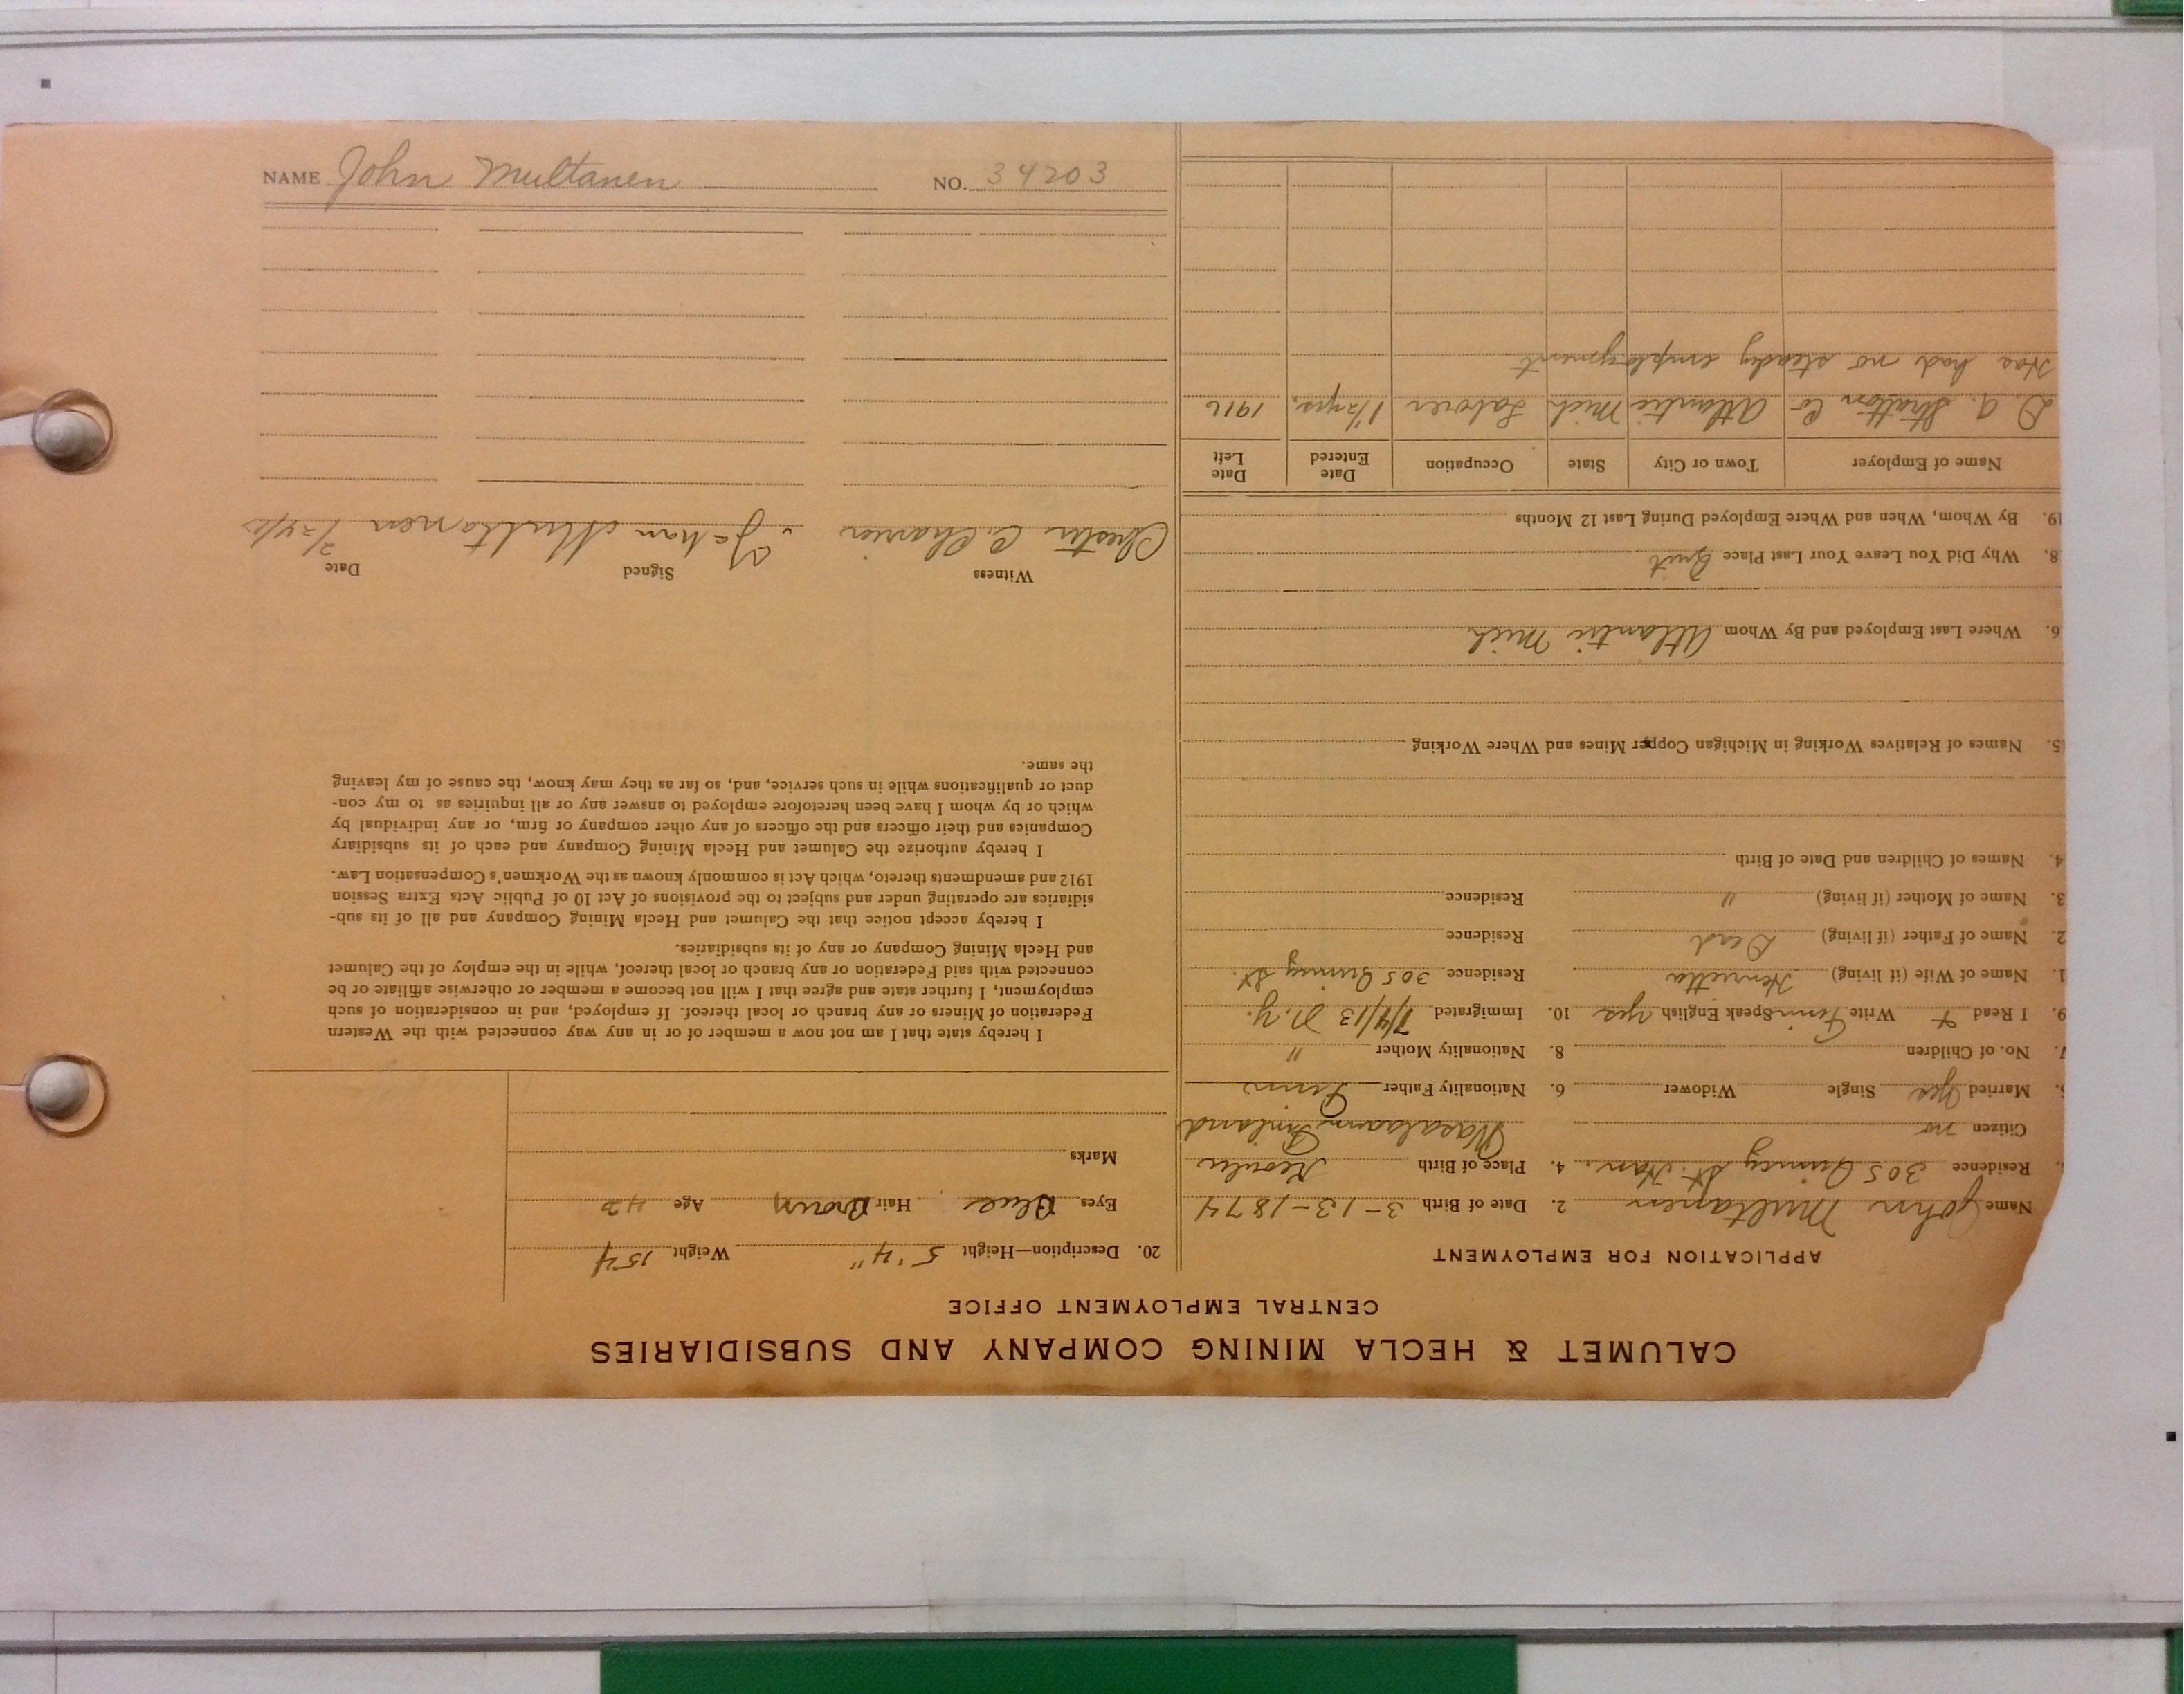 CALUMET & HECLA MINING COMPANY AND SUBSIDIARIES
CENTRAL EMPLOYMENT OFFICE
APPLICATION FOR EMPLOYMENT
Name John Multanen 2. Date of Birth 3-13-1874
Residence 305 Quincy St. Han. 4. Place of Birth
Citizen no Finland
Married yes Single Widower 6. Nationality Father Finn
7. No. of Children 8. Nationality Mother "
9. I Read Write Finn Speak English yes 10. Immigrated 7/4/13 N.Y.
1. Name of Wife (if living) Henrietta Residence 305 Quincy St.
2. Name of Father (if living) Dead Residence
3. Name of Mother (if living) " Residence
4. Names of Children and Date of Birth
5. Names of Relatives Working in Michigan Copper Mines and Where Working
6. Where Last Employed and By Whom Atlantic Mich
8. Why Did You Leave Your Last Place Quit
19. By Whom, When and Where Employed During Last 12 Months
Name of Employer Town or City State Occupation Date Entered Date Left
D. A. Stratton Co Atlantic Mich Laborer 1½ yrs. 1916
Has had no steady employment.
20. Description—Height 5'4" Weight 154
Eyes Blue Hair Brown Age 42
Marks
I hereby state that I am not now a member of or in any way connected with the Western
Federation of Miners or any branch or local thereof. If employed, and in consideration of such
employment, I further state and agree that I will not become a member or otherwise affiliate or be
connected with said Federation or any branch or local thereof, while in the employ of the Calumet
and Hecla Mining Company or any of its subsidiaries.
I hereby accept notice that the Calumet and Hecla Mining Company and all of its sub-
sidiaries are operating under and subject to the provisions of Act 10 of Public Acts Extra Session
1912 and amendments thereto, which Act is commonly known as the Workmen's Compensation Law.
I hereby authorize the Calumet and Hecla Mining Company and each of its subsidiary
Companies and their officers and the officers of any other company or firm, or any individual by
which or by whom I have been heretofore employed to answer any or all inquiries as to my con-
duct or qualifications while in such service, and, so far as they may know, the cause of my leaving
the same.
Witness Signed Date
Chester C. Multanen
NAME John Multanen NO. 34203